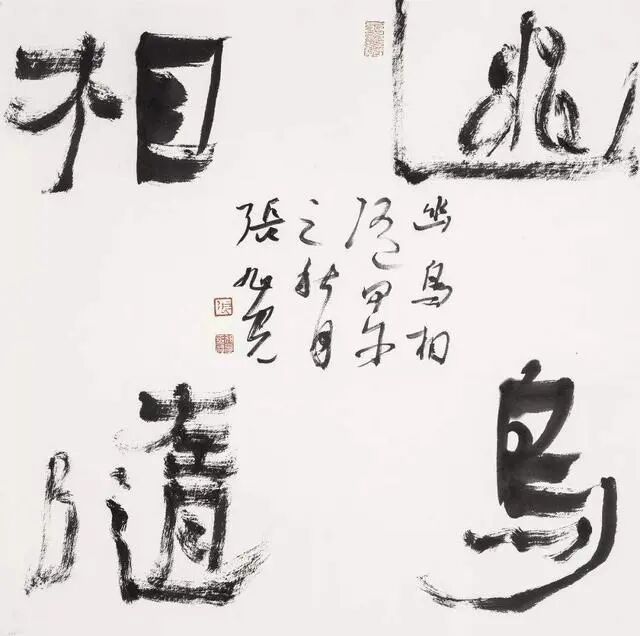 幽鳥
相隨
幽鳥相
随甲午
之秋月
張旭光